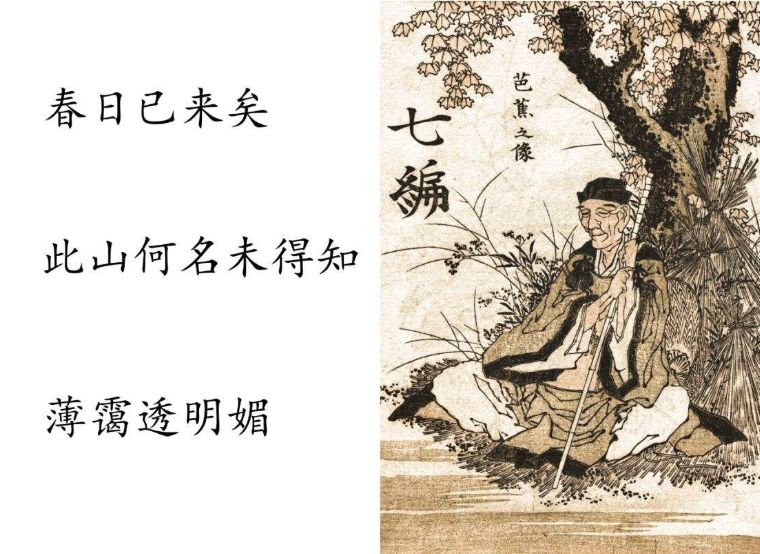 春日已来矣
此山何名未得知
薄霭透明媚
芭蕉之像
七編